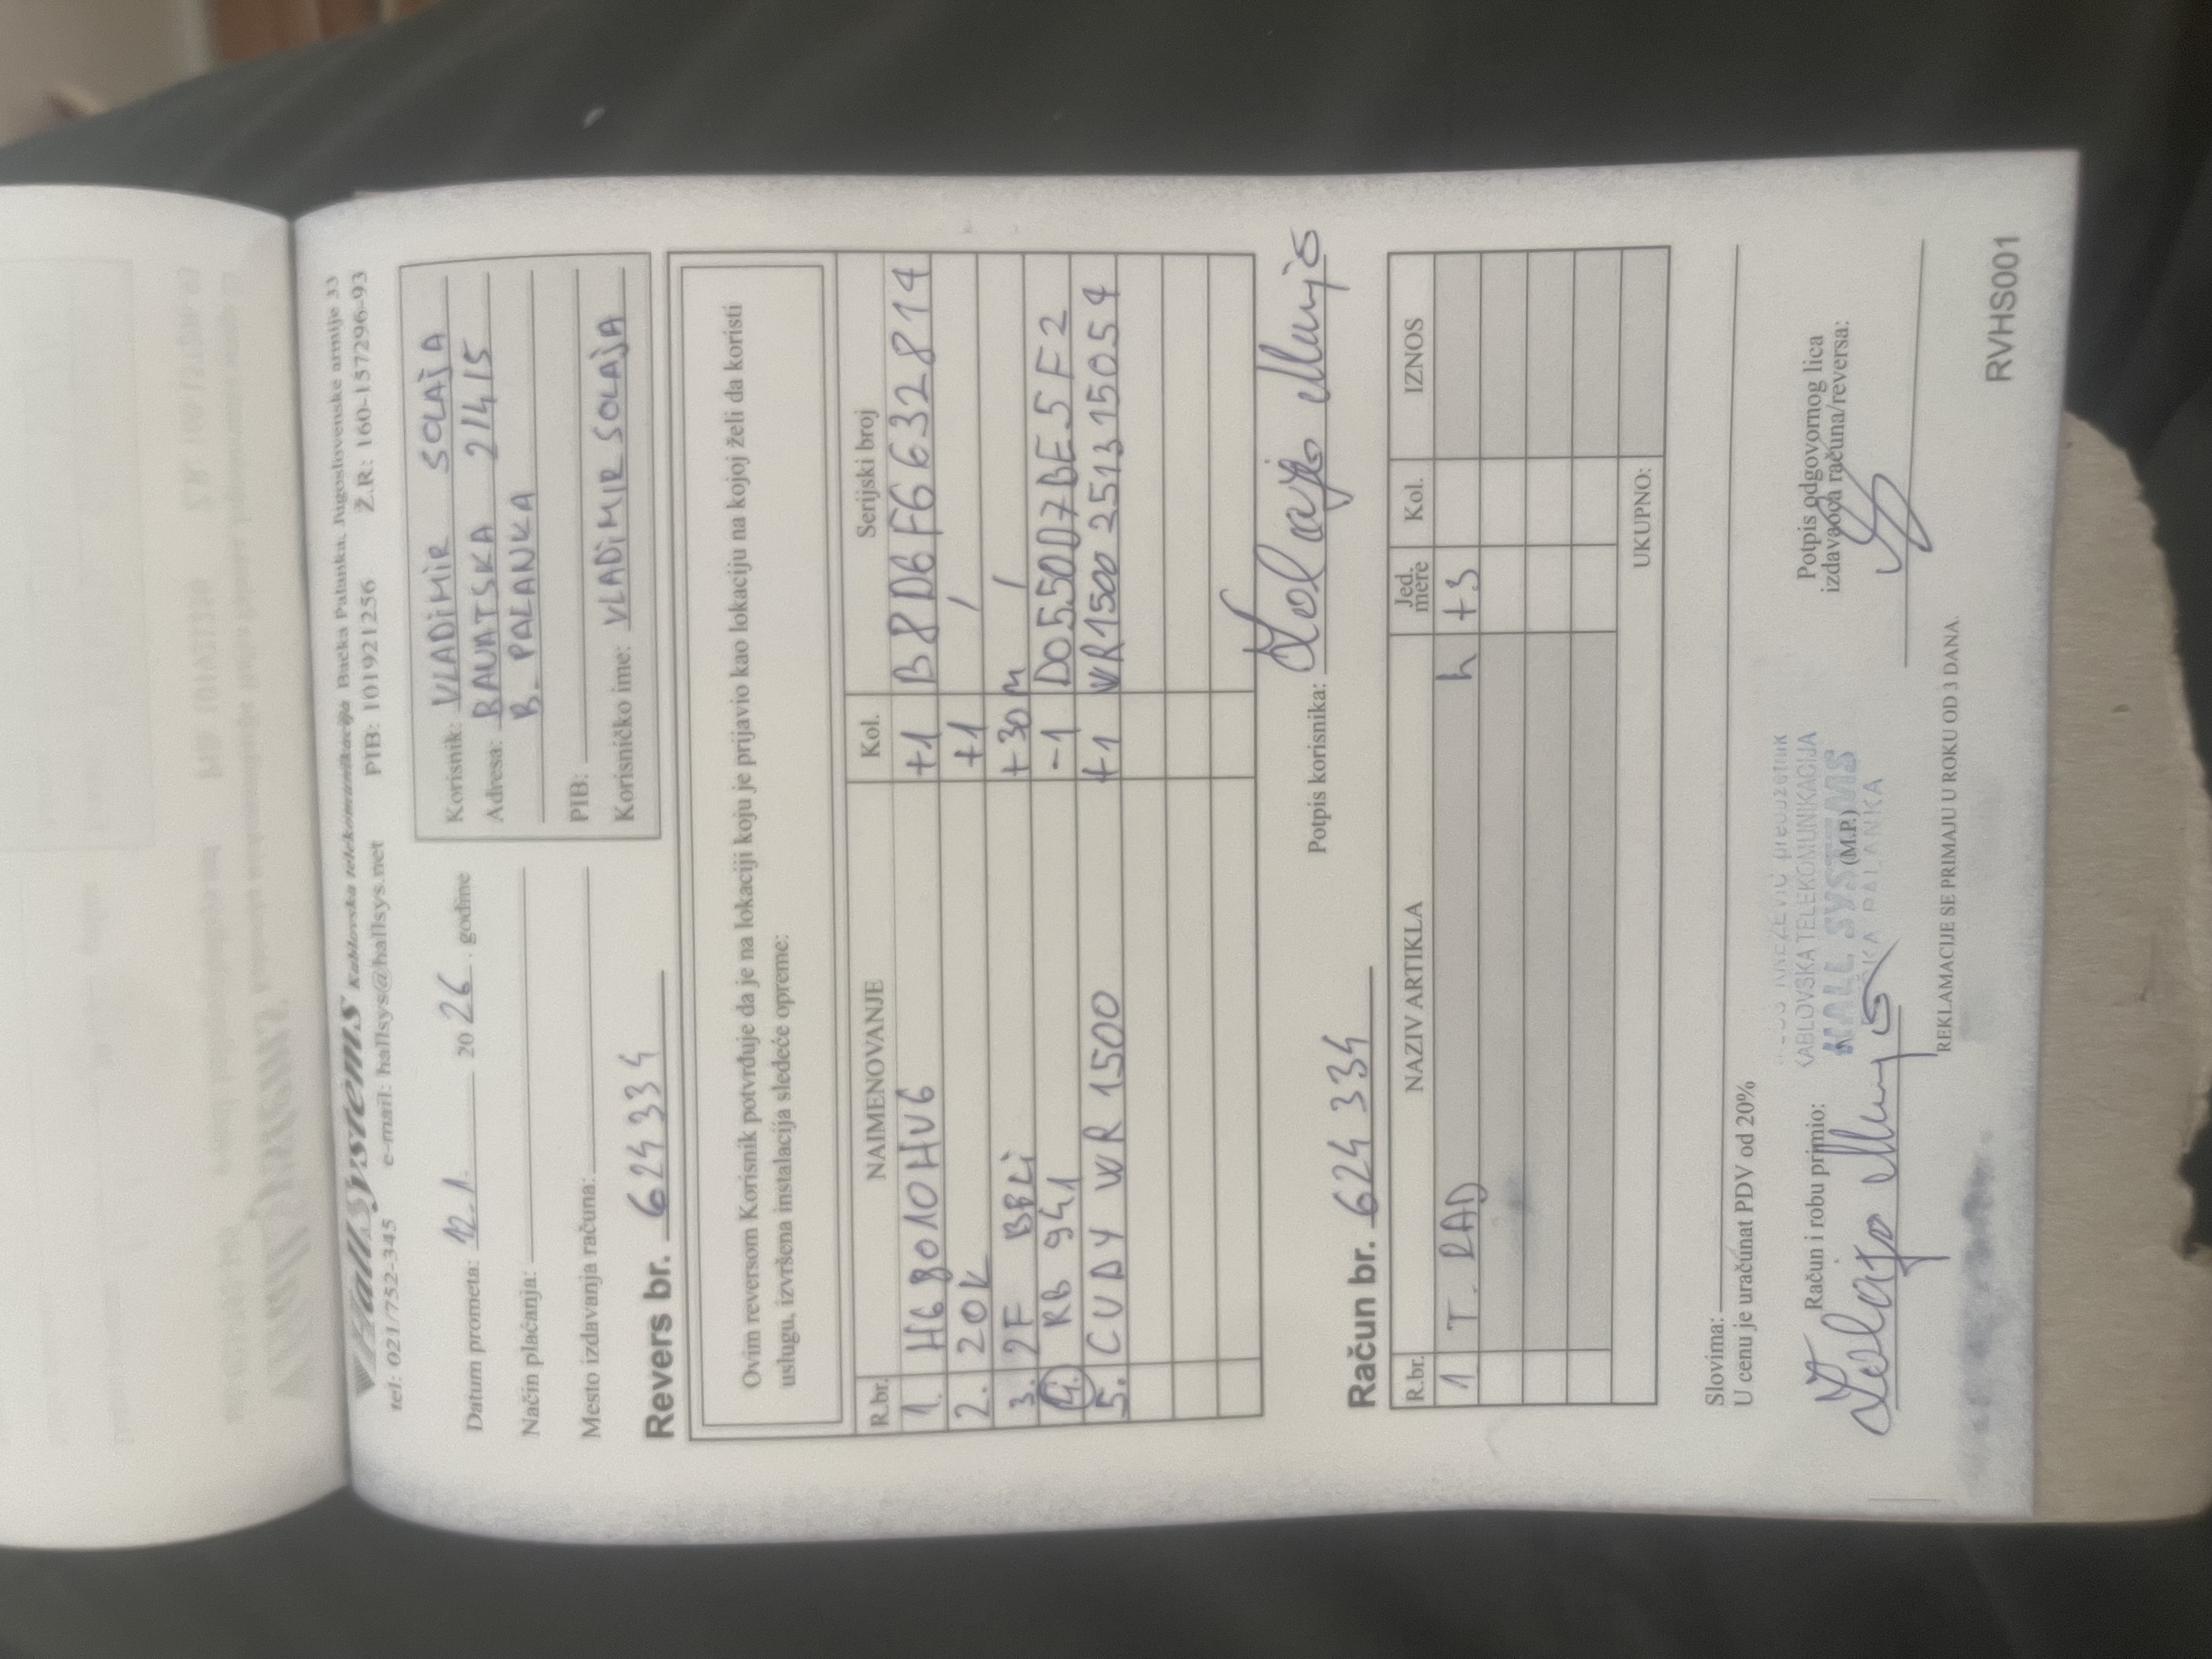 HallSystems Kablovska telekomunikacija Bačka Palanka, Jugoslovenske armije 33
tel: 021/752-345 e-mail: hallsys@hallsys.net PIB: 101921256 Ž.R: 160-157296-93
Datum prometa: 12.1. 2026. godine
Način plaćanja:
Mesto izdavanja računa:
Korisnik: VLADIMIR SOLAJA
Adresa: 21415
B. PALANKA
PIB:
Korisničko ime: VLADIMIR SOLAJA
Revers br. 624334
Ovim reversom Korisnik potvrđuje da je na lokaciji koju je prijavio kao lokaciju na kojoj želi da koristi
uslugu, izvršena instalacija sledeće opreme:
R.br. NAIMENOVANJE Kol. Serijski broj
1. HG8010HV6 +1 B8D6F6632814
2. 20K +1 /
3. 2F BBLI +30m /
4. RB 941 -1 D0550D7BE5F2
5. CUDY WR 1500 +1 WR1500 251315054
Potpis korisnika:
Račun br. 624 334
R.br. NAZIV ARTIKLA Jed. mere Kol. IZNOS
1 T. RAD h +3
UKUPNO:
Slovima:
U cenu je uračunat PDV od 20%
Račun i robu primio:
KABLOVSKA TELEKOMUNIKACIJA
HALL SYSTEMS
(M.P.)
BAČKA PALANKA
Potpis odgovornog lica
izdavaoca računa/reversa:
REKLAMACIJE SE PRIMAJU U ROKU OD 3 DANA.
RVHS001